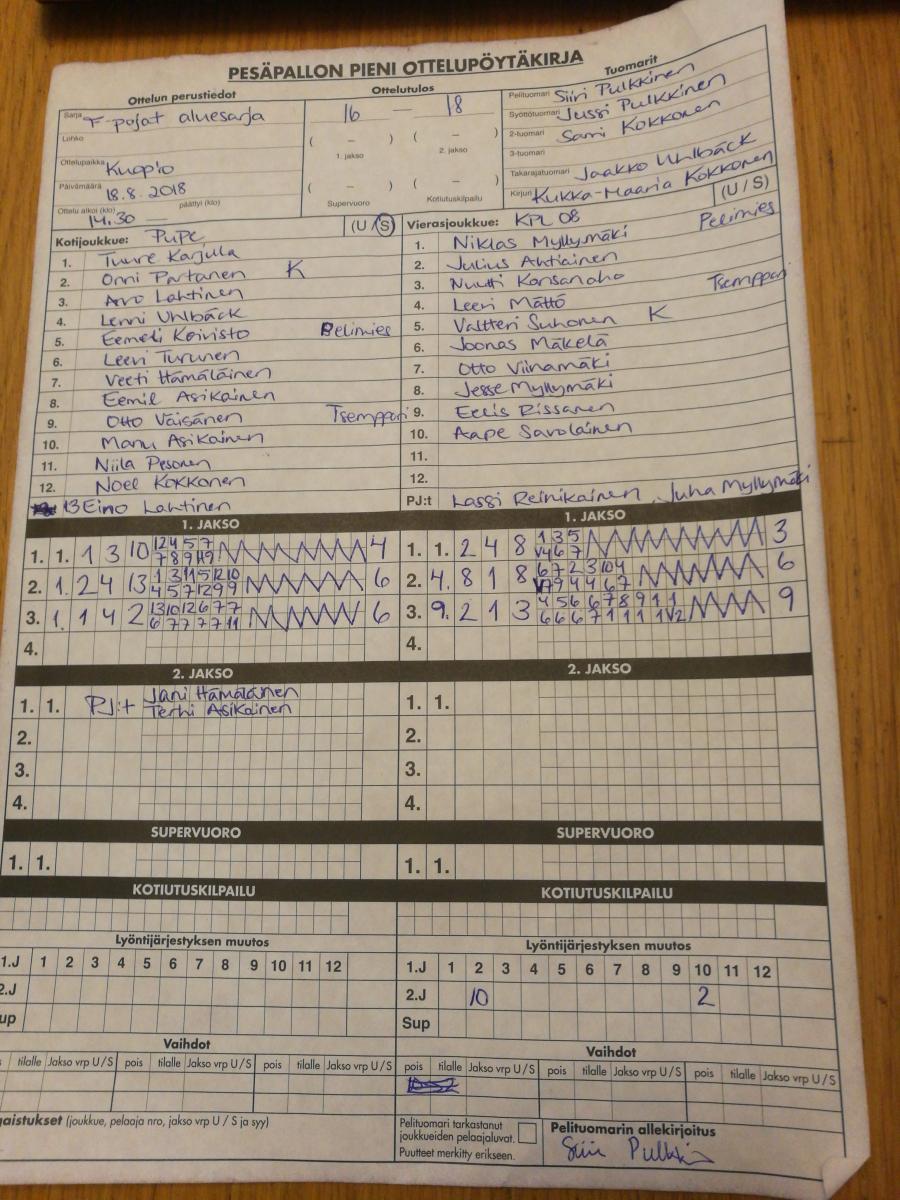 PESÄPALLON PIENI OTTELUPÖYTÄKIRJA
Ottelun perustiedot
Sarja F-pojat aluesarja
Lohko
Ottelupaikka Kuopio
Päivämäärä 18.8.2018
Ottelu alkoi (klo) 14.30 — päättyi (klo)
Ottelutulos
16 — 18
( – ) ( – )
1. jakso 2. jakso
( – ) ( – )
Supervuoro Kotiutuskilpailu
Tuomarit
Pelituomari Siiri Pulkkinen
Syöttötuomari Jussi Pulkkinen
2-tuomari Sami Kokkonen
3-tuomari
Takarajatuomari Jaakko Uhlbäck
Kirjuri Kukka-Maaria Kokkonen
Kotijoukkue: PuPe (U / S)
1. Tuure Karjula
2. Onni Partanen K
3. Arvo Lahtinen
4. Lenni Uhlbäck
5. Eemeli Koivisto Pelimies
6. Leevi Turunen
7. Veeti Hämäläinen
8. Eemil Asikainen
9. Otto Väisänen Tsemppari
10. Manu Asikainen
11. Niila Pesonen
12. Noel Kokkonen
13 Eino Lahtinen
Vierasjoukkue: KPL 08 (U / S)
1. Niklas Myllymäki Pelimies
2. Julius Ahtiainen
3. Nuutti Konsanaho Tsemppari
4. Leevi Mättö
5. Valtteri Suhonen K
6. Joonas Mäkelä
7. Otto Viinamäki
8. Jesse Myllymäki
9. Eelis Rissanen
10. Aape Savolainen
11.
12.
PJ:t Lassi Reinikainen, Juha Myllymäki
1. JAKSO
1. 1. 1 3 10 4
2. 1. 2 4 13 6
3. 1. 1 4 2 6
4.
1. JAKSO
1. 1. 2 4 8 3
2. 4. 8 1 8 6
3. 9. 2 1 3 9
4.
2. JAKSO
1. 1. PJ:t Jani Hämäläinen
Terhi Asikainen
2.
3.
4.
2. JAKSO
1. 1.
2.
3.
4.
SUPERVUORO
1. 1.
SUPERVUORO
1. 1.
KOTIUTUSKILPAILU
KOTIUTUSKILPAILU
Lyöntijärjestyksen muutos
1.J 1 2 3 4 5 6 7 8 9 10 11 12
2.J
up
Lyöntijärjestyksen muutos
1.J 1 2 3 4 5 6 7 8 9 10 11 12
2.J 10 2
Sup
Vaihdot
tilalle Jakso vrp U / S pois tilalle Jakso vrp U / S pois tilalle Jakso vrp U / S
Vaihdot
pois tilalle Jakso vrp U / S pois tilalle Jakso vrp U / S pois tilalle Jakso vrp U / S
gaistukset (joukkue, pelaaja nro, jakso vrp U / S ja syy)
Pelituomari tarkastanut
joukkueiden pelaajaluvat.
Puutteet merkitty erikseen.
Pelituomarin allekirjoitus
Siiri Pulkkinen